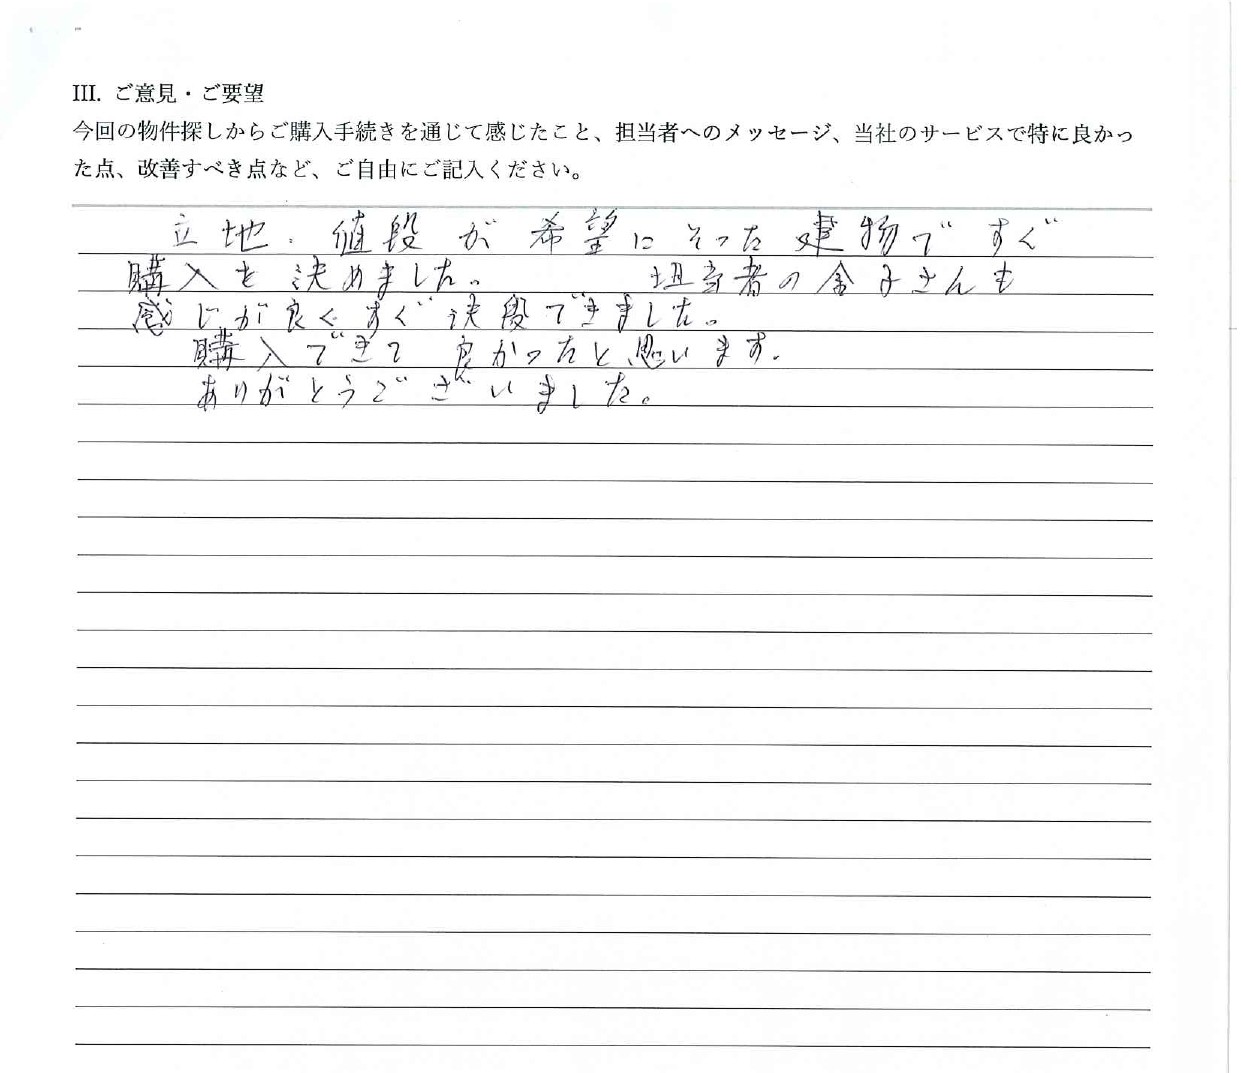 III. ご意見・ご要望
今回の物件探しからご購入手続きを通じて感じたこと、担当者へのメッセージ、当社のサービスで特に良かっ
た点、改善すべき点など、ご自由にご記入ください。
立地、値段が希望にそった建物ですぐ
購入を決めました。 担当者の金子さんも
感じが良くすぐ決段できました。
購入できて良かったと思います。
ありがとうございました。